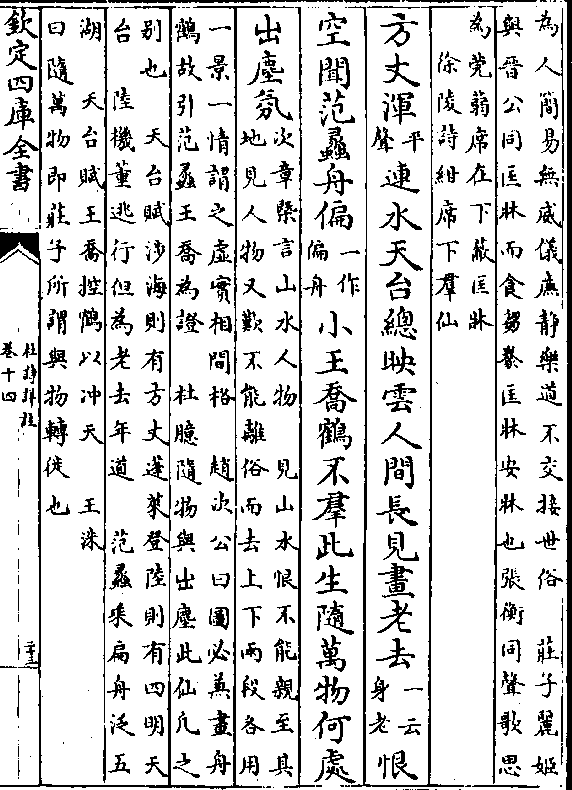 為人簡易無威儀㢘静樂道不交接世俗　莊子麗姬
與晉公同匡牀而食芻豢匡牀安牀也張衡同聲歌思
為莞蒻席在下蔽匡牀
徐陵詩紺席下羣仙
方丈渾平聲連水天台總映雲人間長見畫老去一云身老恨
空聞范蠡舟偏一作偏舟小王喬鶴不羣此生隨萬物何處
出塵氛次章槩言山水人物　見山水恨不能親至其
地見人物又歎不能離俗而去上下兩段各用
一景一情謂之虛實相間格　趙次公曰圖必兼畫舟
鶴故引范蠡王喬為證　杜臆隨物與出塵此仙凡之
别也　天台賦涉海則有方丈蓬萊登陸則有四明天
台　陸機董逃行但為老去年遒　范蠡乘扁舟泛五
湖　天台賦王喬控鶴以冲天　王洙
曰隨萬物即莊子所謂與物轉徙也
欽定四庫全書
杜詩詳註
卷十四